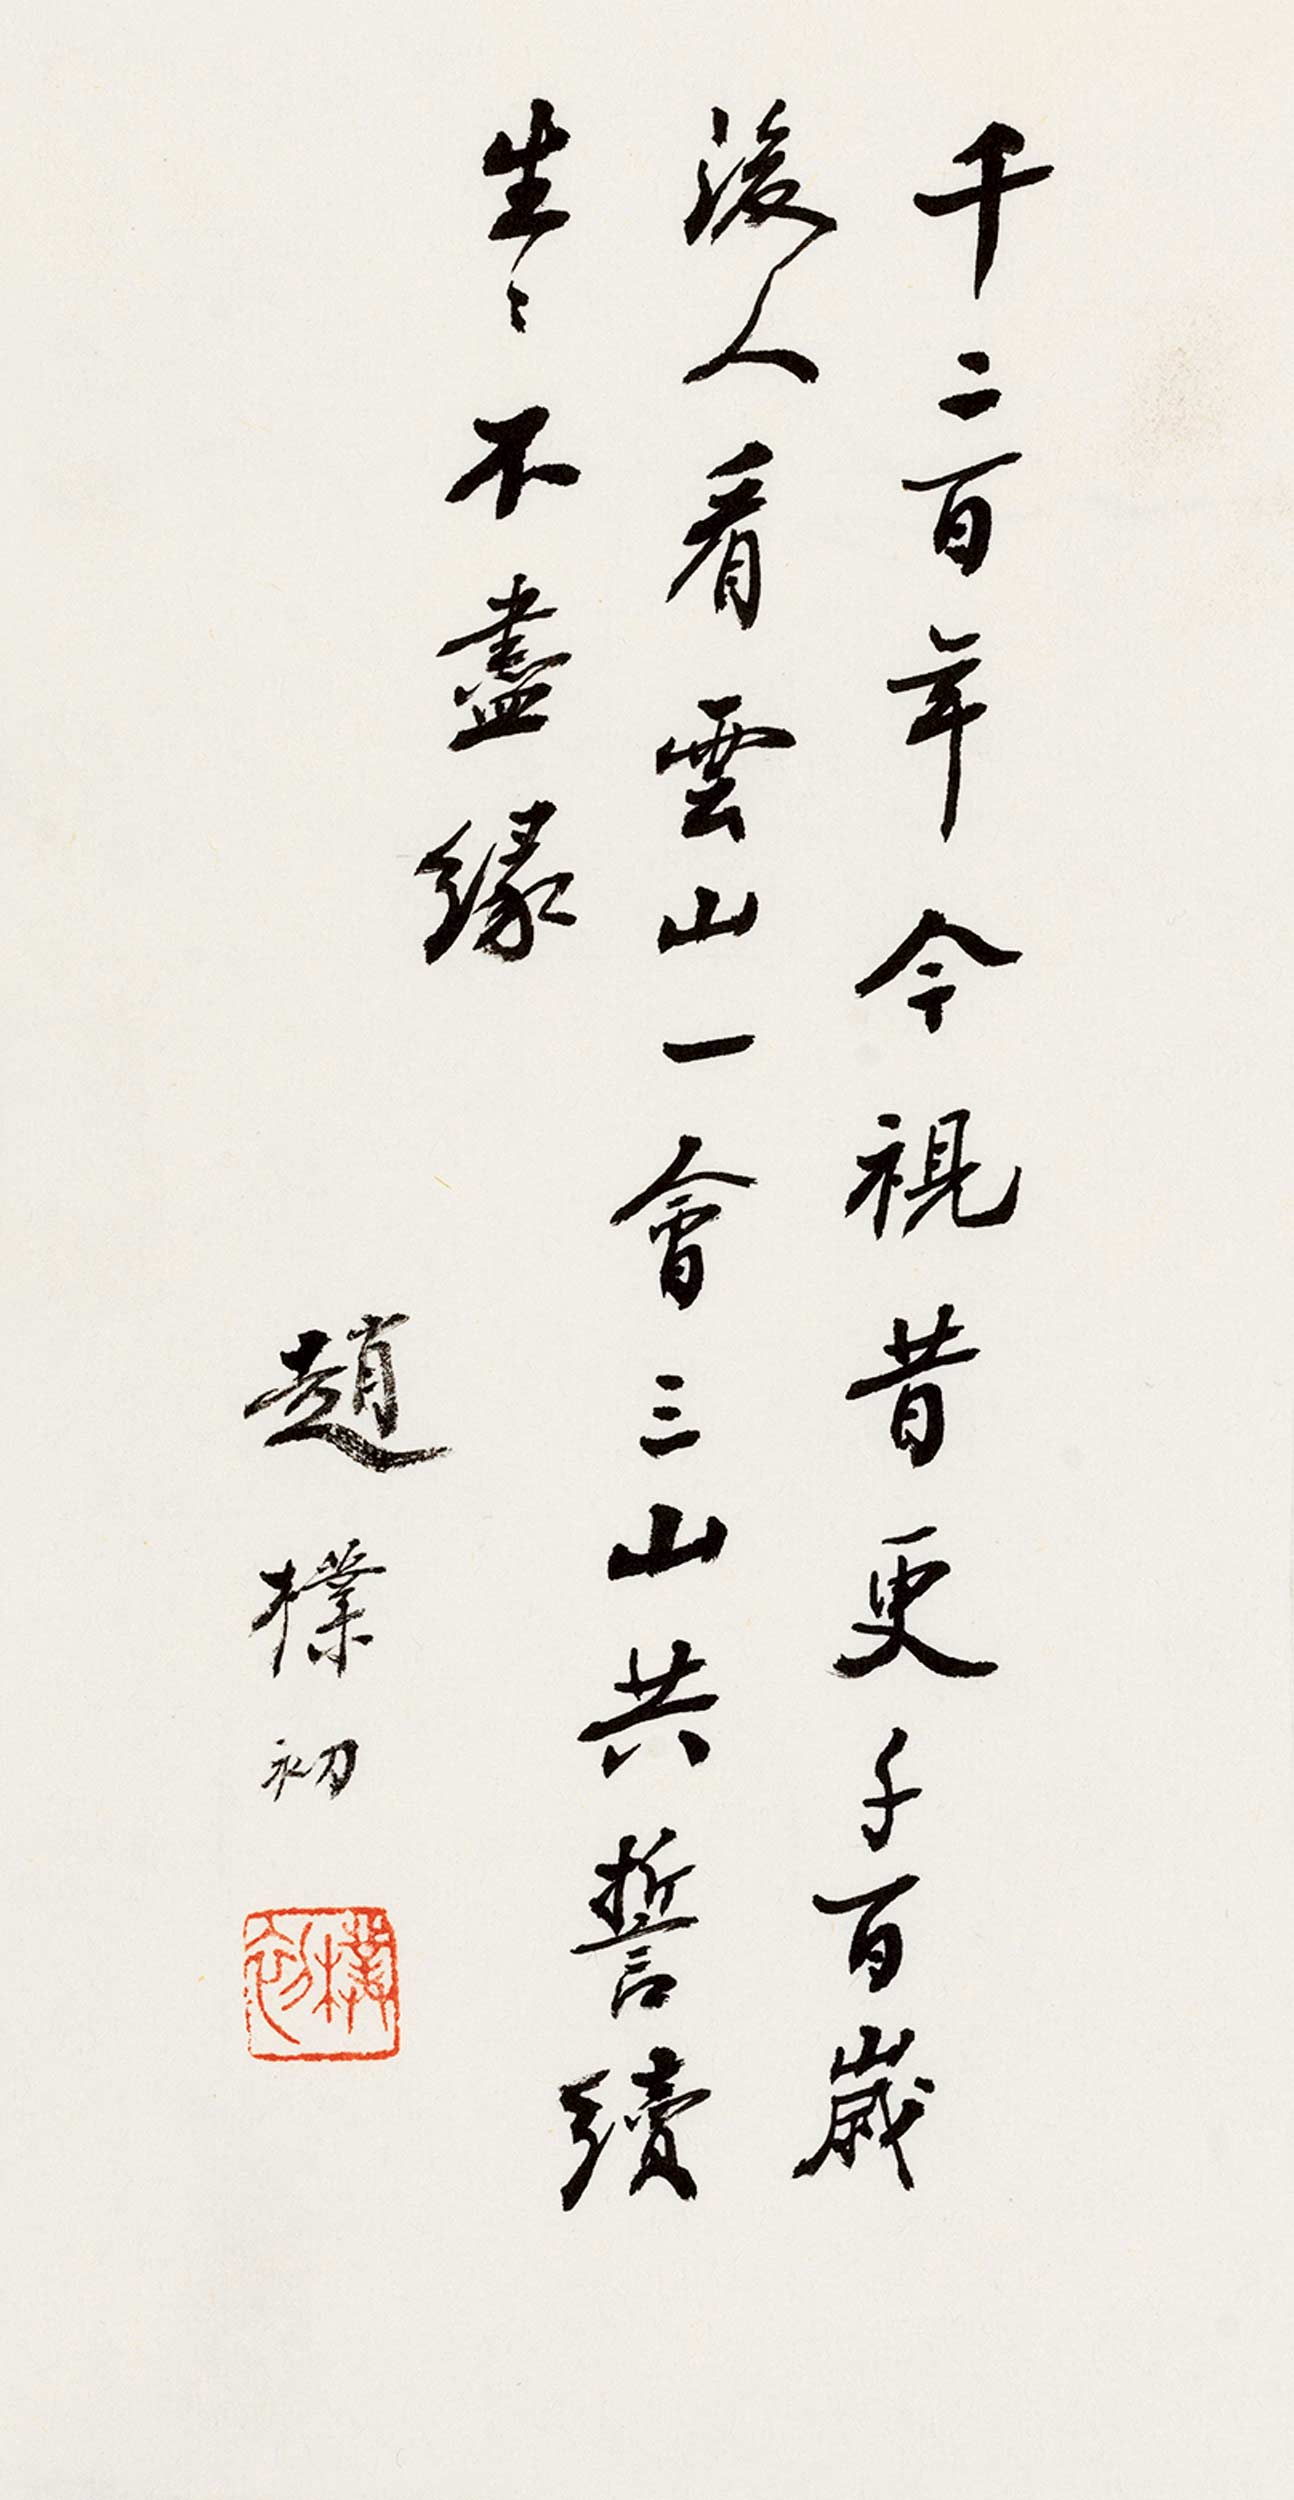 千二百年今視昔更千百歲
後人看雲山一會三山共誓續
生〻不盡緣
趙樸初
樸初